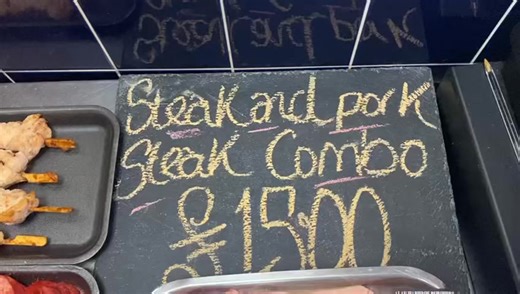 Steak and pork
Steak Combo
£15.00